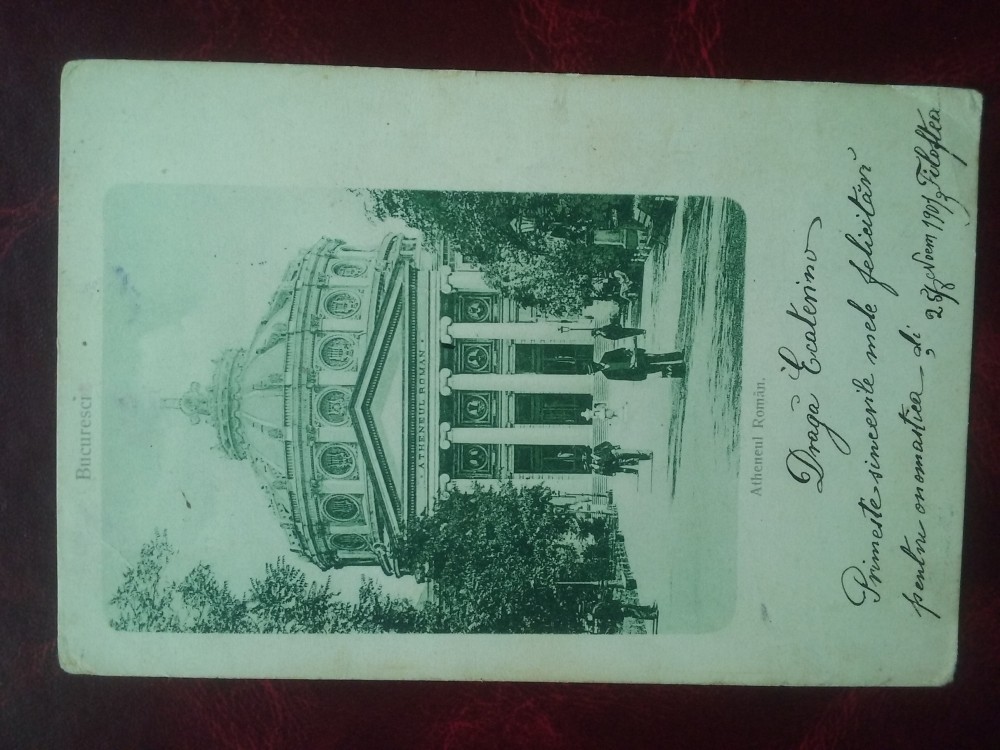 Bucuresci
ATHENEUL ROMAN
Atheneul Român.
Dragă Ecaterino
Primește sincerile mele felicitări
pentru onomastica și
25/ Noem 1901 Filoftea